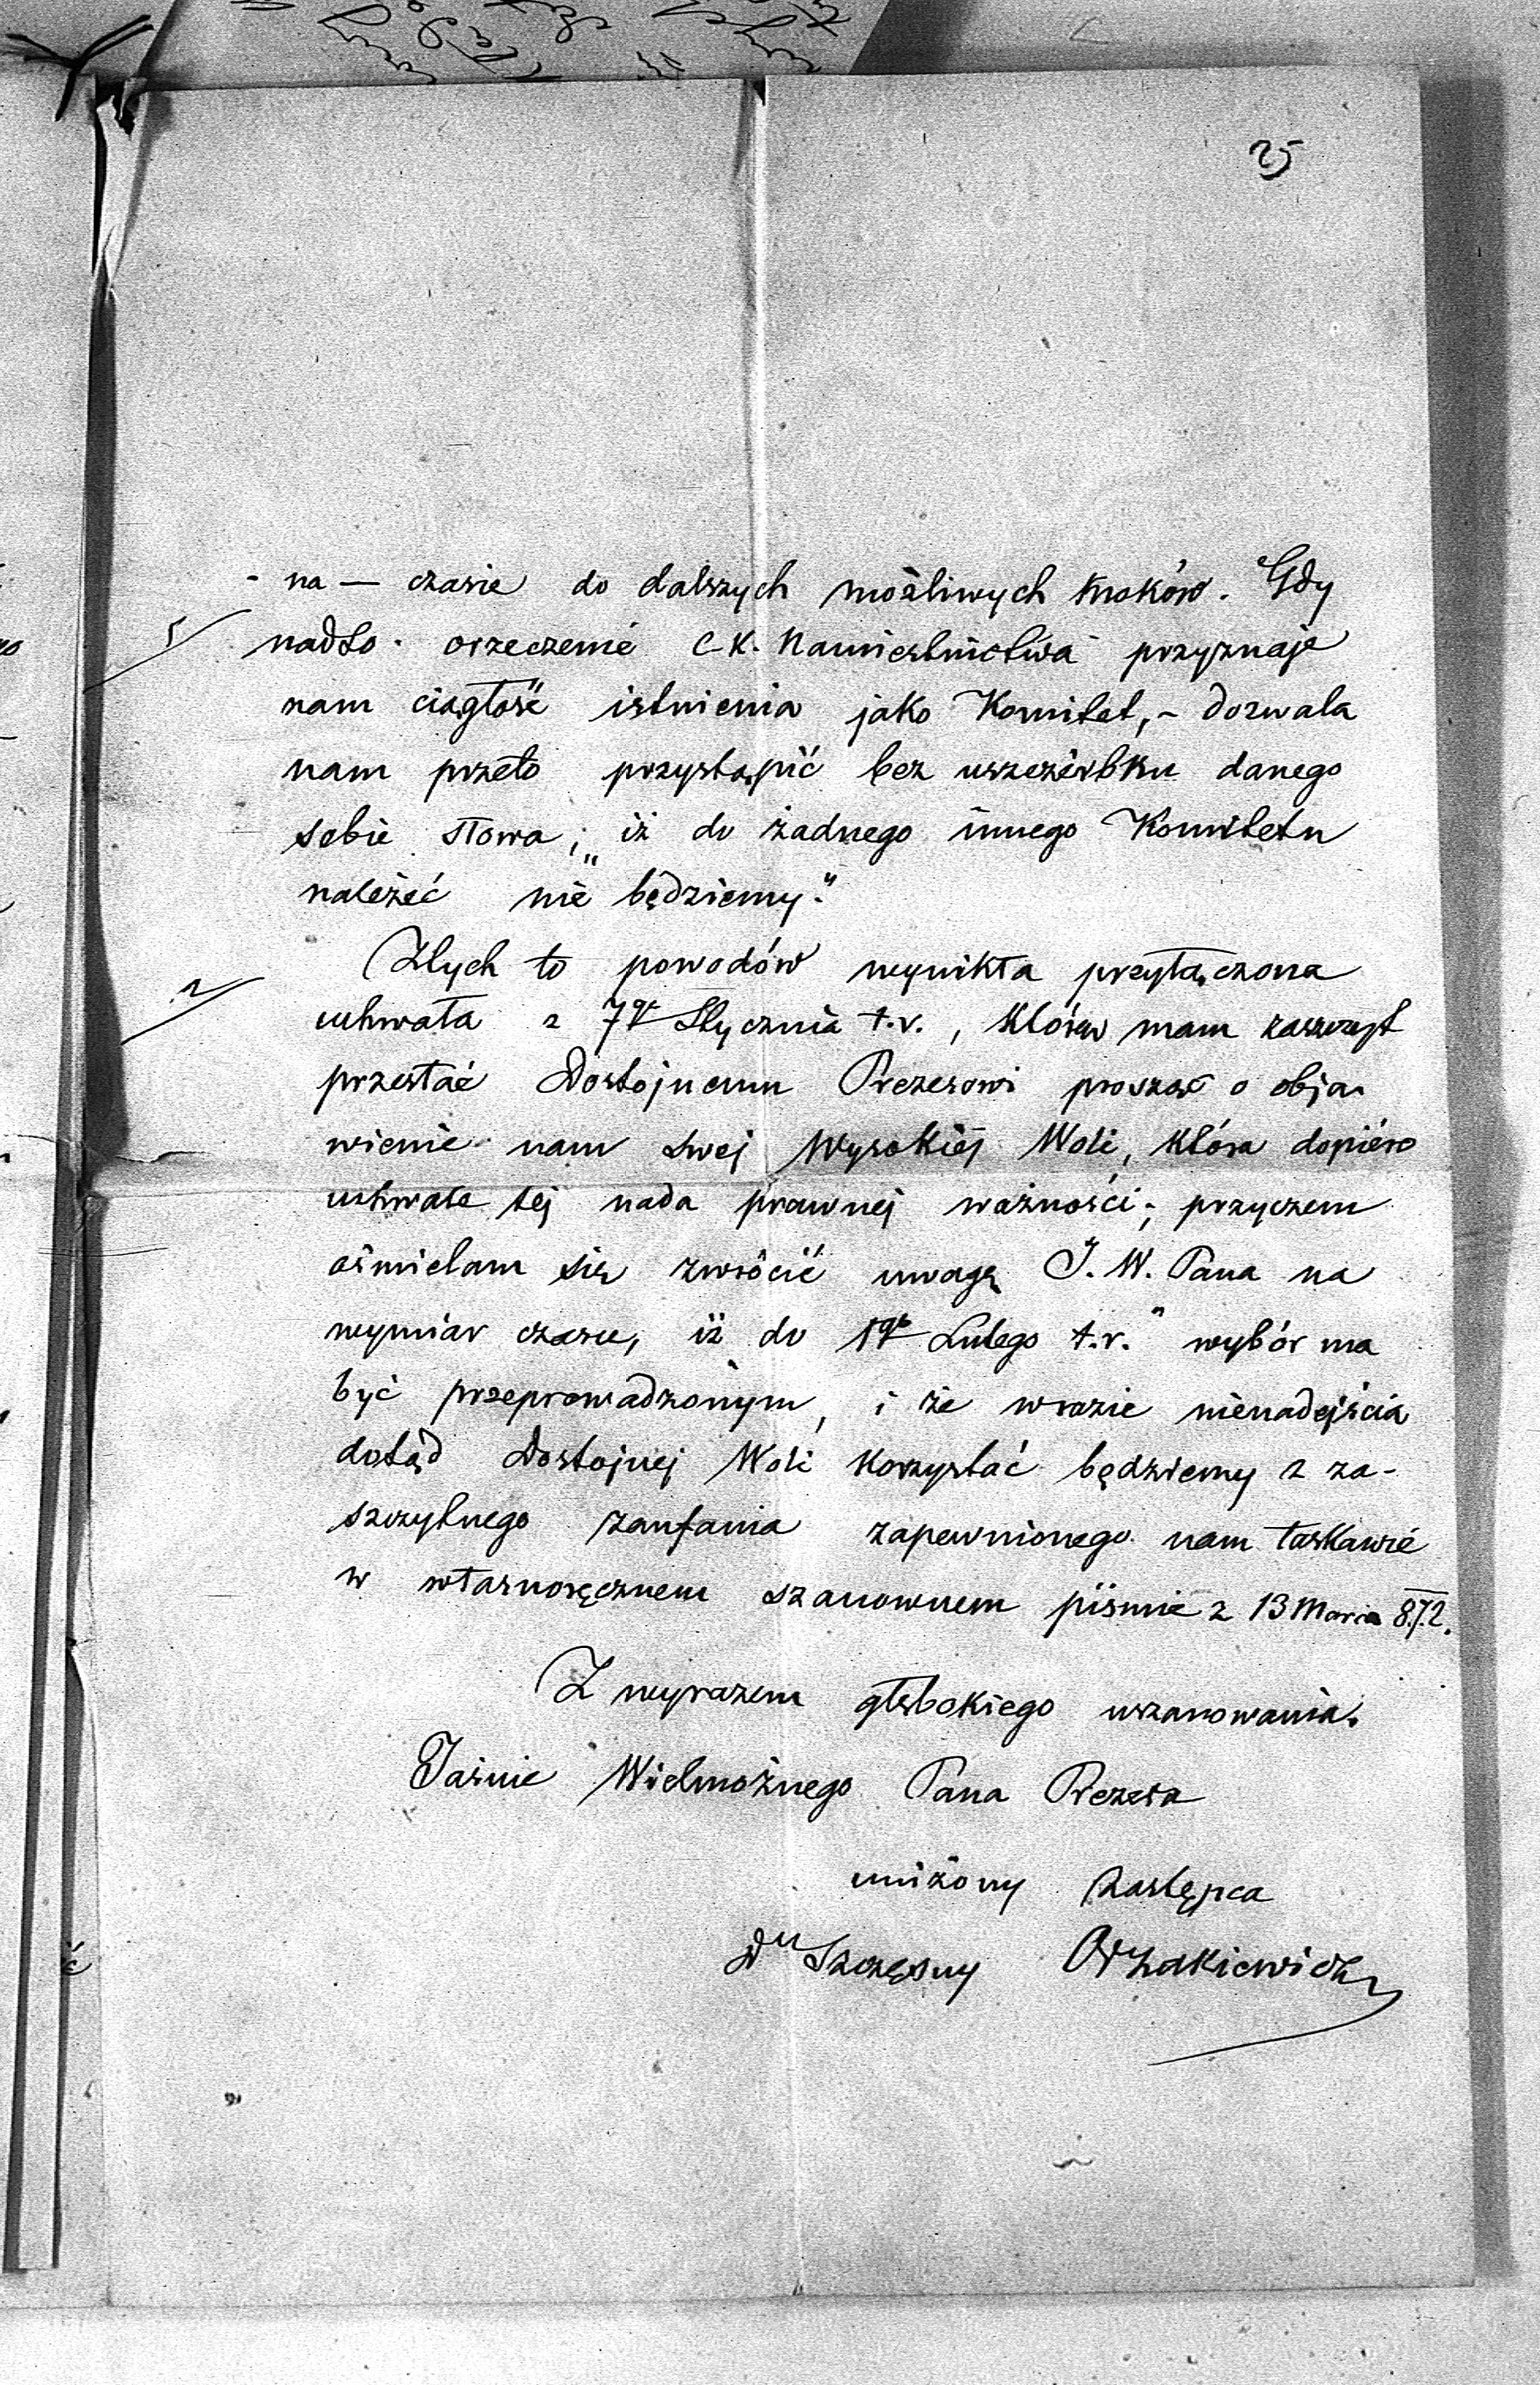 25
- na — czasie do dalszych możliwych kroków. Gdy
nadto orzeczenie C-K. Namiestnictwa przyznaje
nam ciągłość istnienia jako Komitet, - dozwala
nam przeto przystąpić bez uszczerbku danego
sobie słowa, „iż do żadnego innego Komitetu
należeć nie będziemy."
Z tych to powodów wynikła przyłączona
uchwała z 7go Stycznia t.r., którą mam zaszczyt
przesłać Dostojnemu Prezesowi prosząc o obja-
wienie nam swej Wysokiej Woli, która dopiéro
uchwale tej nada prawnej ważności; przyczem
ośmielam się zwrócić uwagę J. W. Pana na
wymiar czasu, iż do 1go Lutego t.r." wybór ma
być przeprowadzonym, i że wrazie nienadejścia
dotąd Dostojnej Woli korzystać będziemy z za-
szczytnego zaufania zapewnionego nam łaskawie
w własnoręcznem szanownem piśmie z 13 Marca 872.
Z wyrazem głębokiego uszanowania.
Jaśnie Wielmożnego Pana Prezesa
uniżony Zastępca
Szczęsny